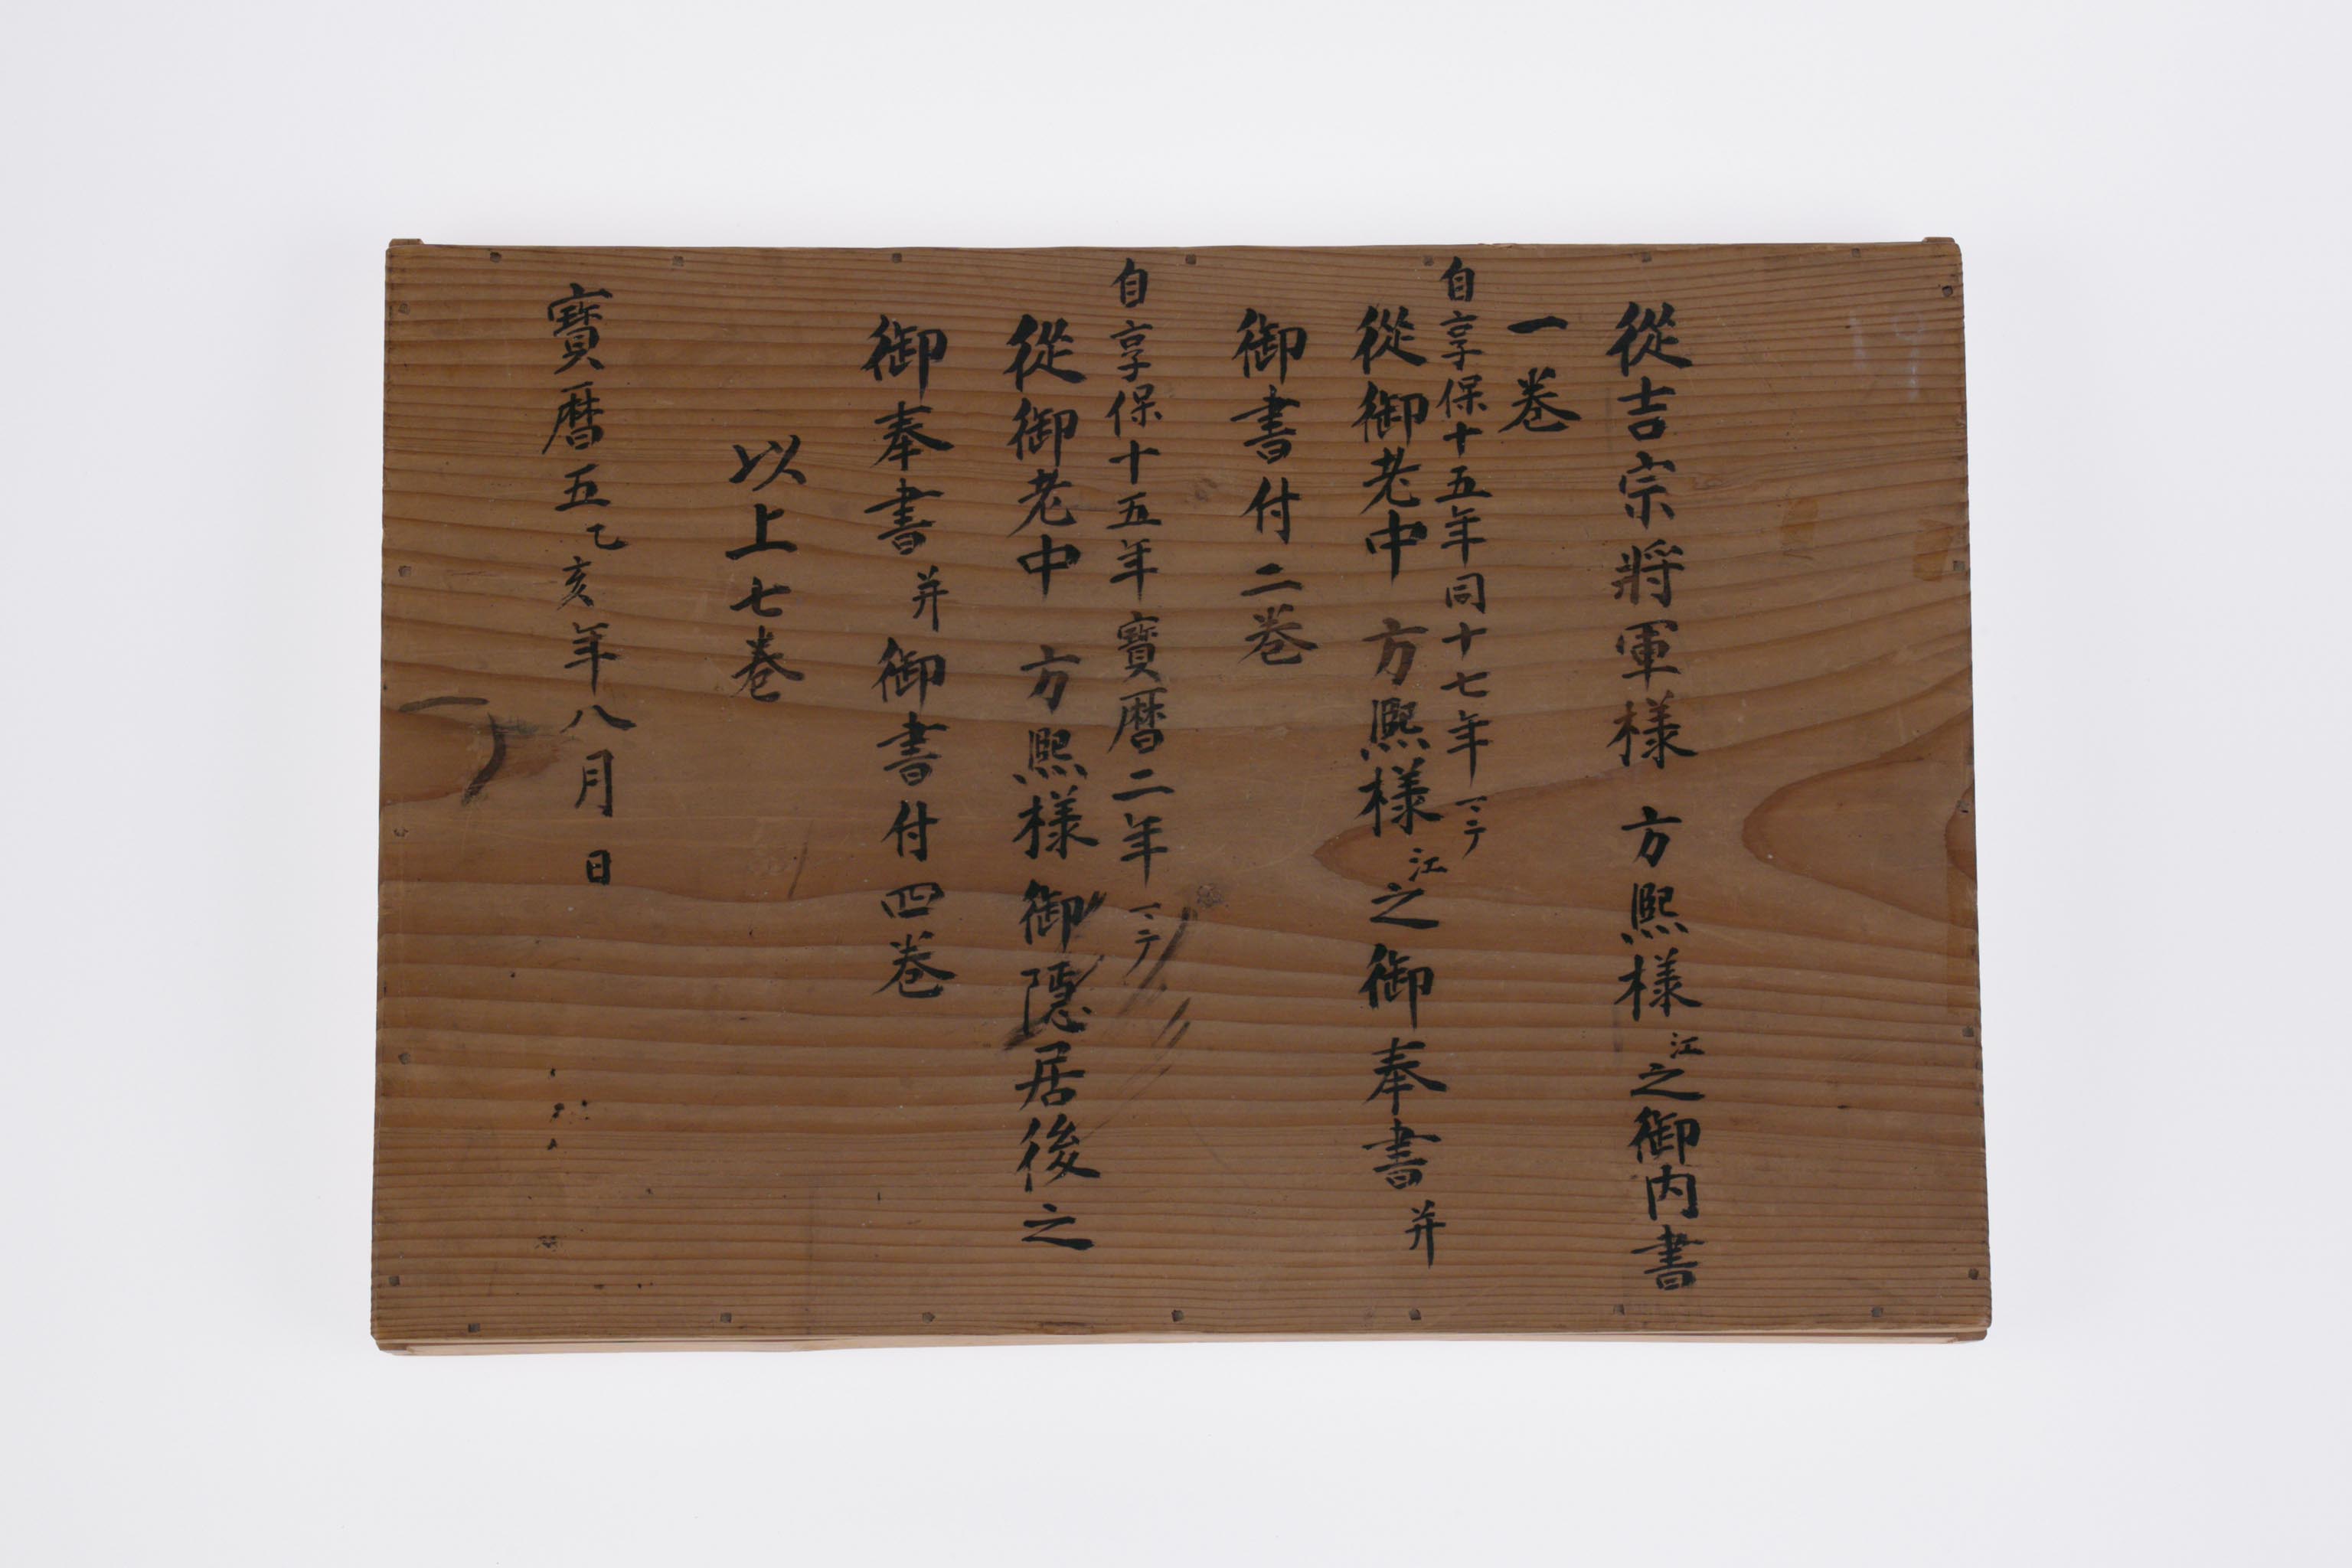 從吉宗將軍様 方熈様江之御内書
一巻
自享保十五年同十七年ニ至テ
從御老中 方熈様江之御奉書并
御書付二巻
自享保十五年寶暦二年ニ至テ
從御老中 方熈様御隠居後之
御奉書并御書付四巻
以上七巻
寶暦五乙亥年八月 日